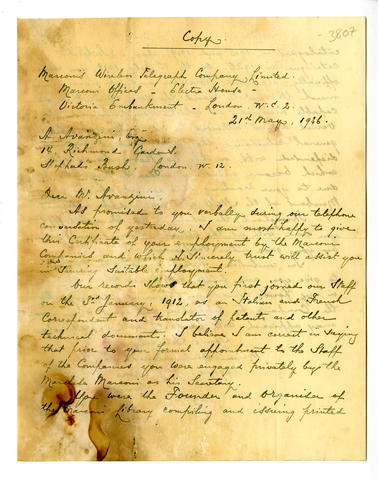 3807
Copy.
Marconi's Wireless Telegraph Company Limited.
Marconi Offices - Electra House -
Victoria Embankment - London. W.C.2.
21st May, 1936.
A. Avanzini, Esq.
Richmond Gardens,
Shepherds Bush, London. W. 12.
Dear Mr. Avanzini,
As promised to you verbally during our telephone
conversation of yesterday, I am most happy to give
this Certificate of your employment by the Marconi
Companies and which I sincerely trust will assist you
in securing suitable employment.
Our records show that you first joined our Staff
on the 3rd January, 1912, as an Italian and French
Correspondent and translator of patents and other
technical documents. I believe I am correct in saying
that prior to your formal appointment to the Staff
of the Companies you were engaged privately by the
Marchese Marconi as his Secretary.
You were the Founder and Organiser of
the Marconi Library compiling and issuing printed